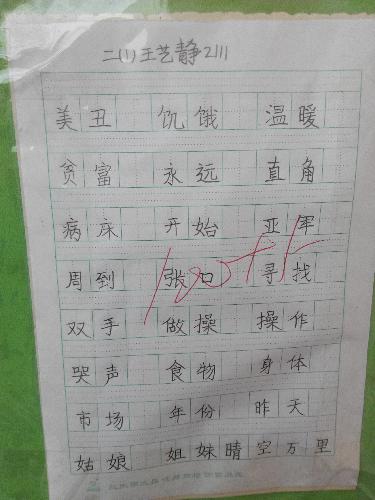 二(1)王艺静2111
美丑 饥饿 温暖
贫富 永远 直角
病床 开始 亚军
周到 张口 寻找
双手 做操 操作
哭声 食物 身体
市场 年份 昨天
姑娘 姐妹 晴空万里